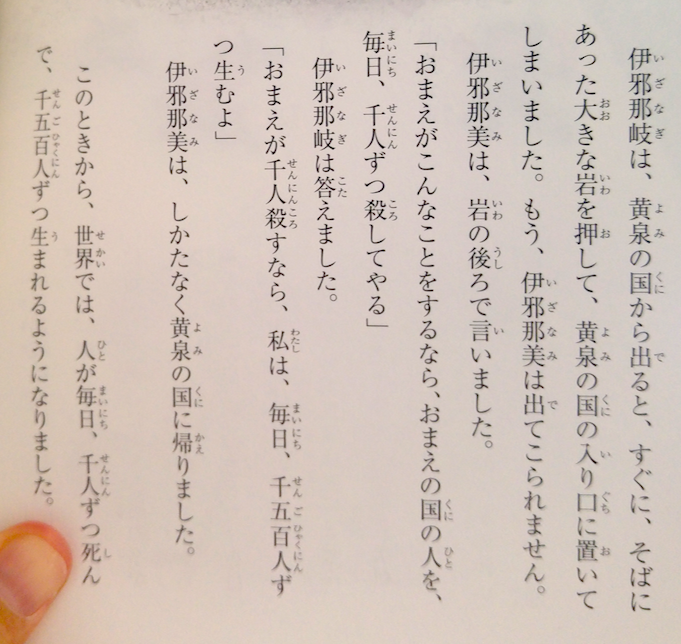 伊邪那岐は、黄泉の国から出ると、すぐに、そばに
あった大きな岩を押して、黄泉の国の入り口に置いて
しまいました。もう、伊邪那美は出てこられません。
伊邪那美は、岩の後ろで言いました。
「おまえがこんなことをするなら、おまえの国の人を、
毎日、千人ずつ殺してやる」
伊邪那岐は答えました。
「おまえが千人殺すなら、私は、毎日、千五百人ず
つ生むよ」
伊邪那美は、しかたなく黄泉の国に帰りました。
このときから、世界では、人が毎日、千人ずつ死ん
で、千五百人ずつ生まれるようになりました。